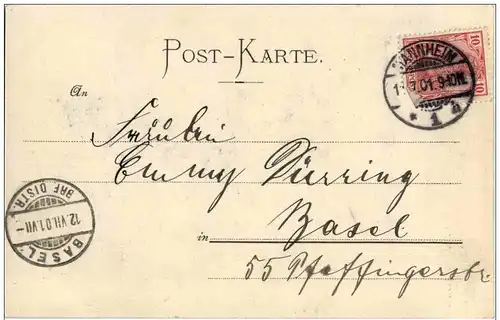 POST-KARTE.
An
Fräulein
Emmy Dürring
in Basel
55 Pfeffingerstr
10 10
MANNHEIM
7.01. 9-10N.
* 1 h
BASEL
12.VII.01.VII-
BRF. DISTR.